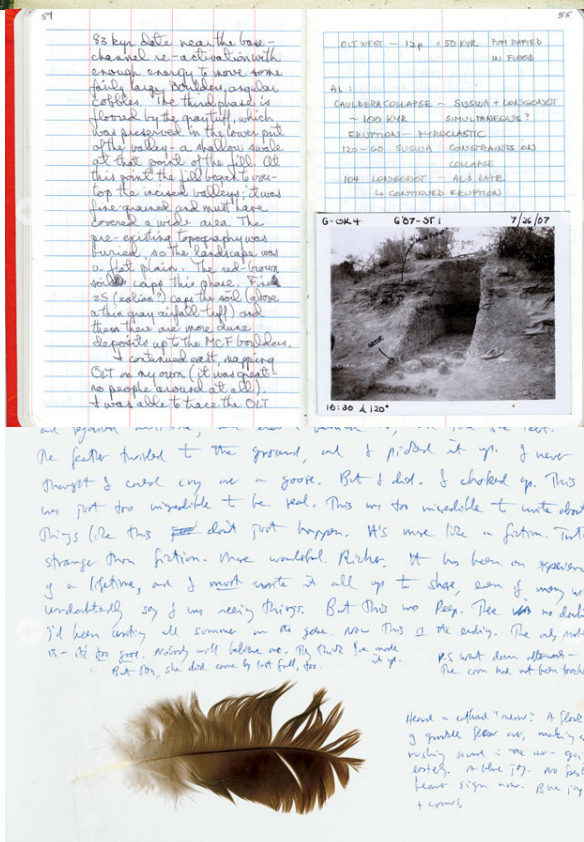 54
83 kyr date near the base –
channel re-activation with
enough energy to move some
fairly large boulders, angular
cobbles. The third phase is
floored by the gray tuff, which
was preserved in the lower part
of the valley – a shallow swale
at that point of the fill. At
this point the fill began to over-
top the incised valleys; it was
fine-grained and must have
covered a wide area. The
pre-existing topography was
buried, so the landscape was
a flat plain. The red-brown
soil caps this phase.
25 (eolian?) caps the soil (above
a thin gray airfall tuff) and
then there are more dune
deposits up to the MCF boulders.
I continued east, mapping
OLT on my own (it was great –
no people around at all).
I was able to trace the OLT
55
OLT WEST – 12p = 50 KYR PUM RAFTED
IN FLOOD
AL:
CAULDERA COLLAPSE ~ SUSWA + LONGONOT
~ 100 KYR SIMULTANEOUS?
ERUPTION – PYROCLASTIC
120-60 SUSWA CONSTRAINTS ON
COLLAPSE
104 LONGONOT – AL'S DATE
↳ CONTINUED ERUPTION
G-OR4 G'07-ST1 7/26/07
10:30 120°
The feather twirled to the ground, and I picked it up. I never
thought I could cry over a goose. But I did. I choked up. This
was just too incredible to be real. This was too incredible to write about.
Things like this don't just happen. It's more like a fiction.
stranger than fiction. More wonderful. Richer. It has been an experience
of a lifetime, and I must write it all up to share, even if many will
undoubtedly say I was seeing things. But this was Peep. There was no doubt
I'd been writing all summer on the geese. Now this is the ending. The only
is – it's too good. Nobody will believe me. They'll think I've made
it up.
But stay, she did come by last fall, too.
P.S. Went down afterwards –
The corn had not been touched
Heard a catbird "meow". A flock
of grackles flew over, making a
rushing sound in the air – going
easterly. A blue jay. No fresh
beaver sign now. Blue jay
+ crows.